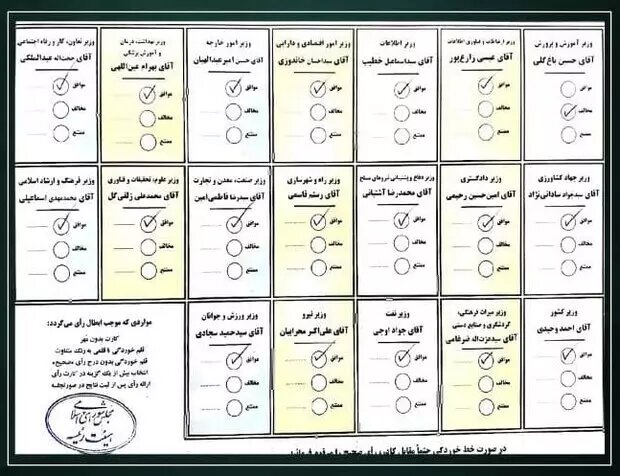 وزیر آموزش و پرورش
آقای حسین باغ‌گلی
موافق
مخالف
ممتنع
وزیر ارتباطات و فناوری اطلاعات
آقای عیسی زارع‌پور
موافق
مخالف
ممتنع
وزیر اطلاعات
آقای سیداسماعیل خطیب
موافق
مخالف
ممتنع
وزیر امور اقتصادی و دارایی
آقای سیداحسان خاندوزی
موافق
مخالف
ممتنع
وزیر امور خارجه
آقای حسین امیرعبداللهیان
موافق
مخالف
ممتنع
وزیر بهداشت، درمان
و آموزش پزشکی
آقای بهرام عین‌اللهی
موافق
مخالف
ممتنع
وزیر تعاون، کار و رفاه اجتماعی
آقای حجت‌اله عبدالملکی
موافق
مخالف
ممتنع
وزیر جهاد کشاورزی
آقای سیدجواد ساداتی‌نژاد
موافق
مخالف
ممتنع
وزیر دادگستری
آقای امین‌حسین رحیمی
موافق
مخالف
ممتنع
وزیر دفاع و پشتیبانی نیروهای مسلح
آقای محمدرضا آشتیانی
موافق
مخالف
ممتنع
وزیر راه و شهرسازی
آقای رستم قاسمی
موافق
مخالف
ممتنع
وزیر صنعت، معدن و تجارت
آقای سیدرضا فاطمی‌امین
موافق
مخالف
ممتنع
وزیر علوم، تحقیقات و فناوری
آقای محمدعلی زلفی‌گل
موافق
مخالف
ممتنع
وزیر فرهنگ و ارشاد اسلامی
آقای محمدمهدی اسماعیلی
موافق
مخالف
ممتنع
وزیر کشور
آقای احمد وحیدی
موافق
مخالف
ممتنع
وزیر میراث فرهنگی،
گردشگری و صنایع دستی
آقای سیدعزت‌اله ضرغامی
موافق
مخالف
ممتنع
وزیر نفت
آقای جواد اوجی
موافق
مخالف
ممتنع
وزیر نیرو
آقای علی‌اکبر محرابیان
موافق
مخالف
ممتنع
وزیر ورزش و جوانان
آقای سیدحمید سجادی
موافق
مخالف
ممتنع
مواردی که موجب ابطال رأی می‌گردد:
کارت بدون مهر
قلم خوردگی با قلمی به رنگ متفاوت
قلم خوردگی بدون درج رأی «صحیح»
انتخاب بیش از یک گزینه در کارت رأی
ارائه رأی پس از ثبت نتایج در صورتجلسه
مجلس شورای اسلامی
هیئت رئیسه
در صورت خط خوردگی حتماً مقابل کادر، رأی صحیح را مرقوم فرمائید